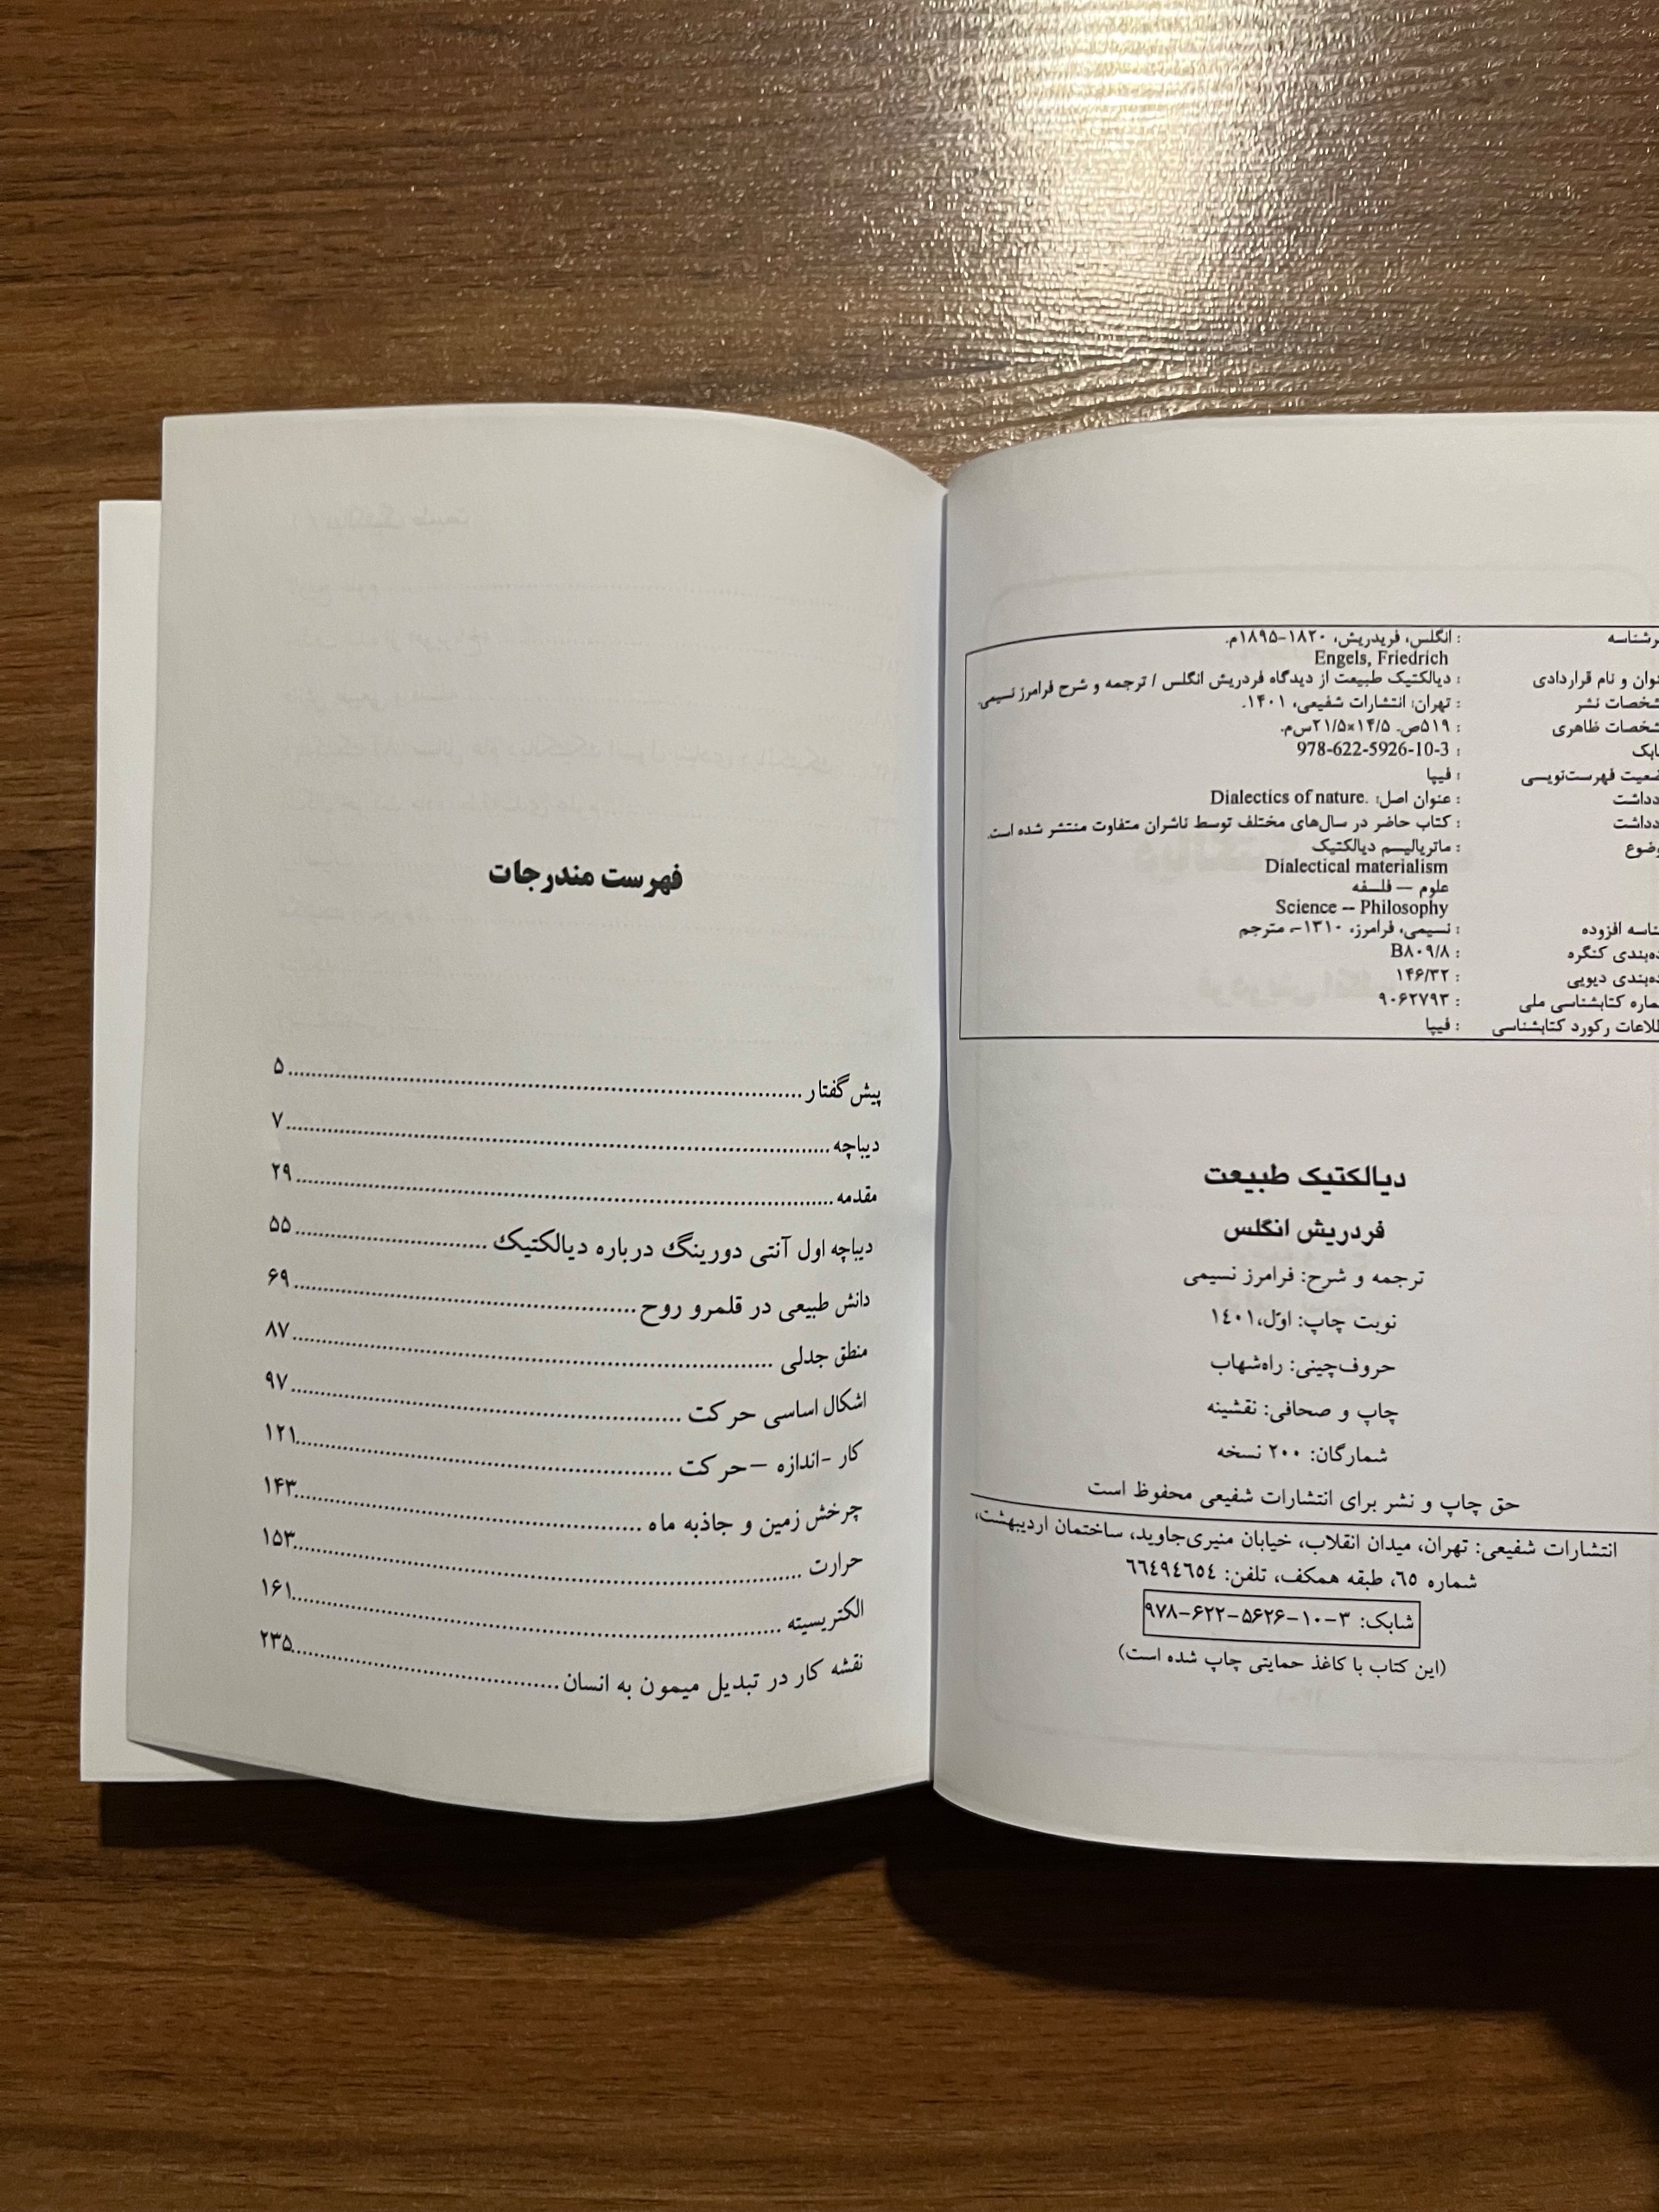 رشناسه : انگلس، فریدریش، ۱۸۲۰-۱۸۹۵م.
Engels, Friedrich
نوان و نام قراردادی : دیالکتیک طبیعت از دیدگاه فردریش انگلس / ترجمه و شرح فرامرز نسیمی.
شخصات نشر : تهران: انتشارات شفیعی، ۱۴۰۱.
شخصات ظاهری : ۵۱۹ص. ۱۴/۵×۲۱/۵س‌م.
ابک : 978-622-5926-10-3
ضعیت فهرست‌نویسی : فیپا
دداشت : عنوان اصل: Dialectics of nature.
دداشت : کتاب حاضر در سال‌های مختلف توسط ناشران متفاوت منتشر شده است.
وضوع : ماتریالیسم دیالکتیک
Dialectical materialism
علوم — فلسفه
Science -- Philosophy
ناسه افزوده : نسیمی، فرامرز، ۱۳۱۰-، مترجم
ده‌بندی کنگره : B۸۰۹/۸
ده‌بندی دیویی : ۱۴۶/۳۲
ماره کتابشناسی ملی : ۹۰۶۲۷۹۳
للاعات رکورد کتابشناسی : فیپا
دیالکتیک طبیعت
فردریش انگلس
ترجمه و شرح: فرامرز نسیمی
نوبت چاپ: اوّل،۱٤۰۱
حروف‌چینی: راه‌شهاب
چاپ و صحافی: نقشینه
شمارگان: ۲۰۰ نسخه
حق چاپ و نشر برای انتشارات شفیعی محفوظ است
انتشارات شفیعی: تهران، میدان انقلاب، خیابان منیری‌جاوید، ساختمان اردیبهشت،
شماره ٦٥، طبقه همکف، تلفن: ٦٦٤٩٤٦٥٤
شابک: ۳-۱۰-۵۶۲۶-۶۲۲-۹۷۸
(این کتاب با کاغذ حمایتی چاپ شده است)
فهرست مندرجات
پیش گفتار ۵
دیباچه ۷
مقدمه ۲۹
دیباچه اول آنتی دورینگ درباره دیالکتیک ۵۵
دانش طبیعی در قلمرو روح ۶۹
منطق جدلی ۸۷
اشکال اساسی حرکت ۹۷
کار -اندازه –حرکت ۱۲۱
چرخش زمین و جاذبه ماه ۱۴۳
حرارت ۱۵۳
الکتریسیته ۱۶۱
نقشه کار در تبدیل میمون به انسان ۲۳۵